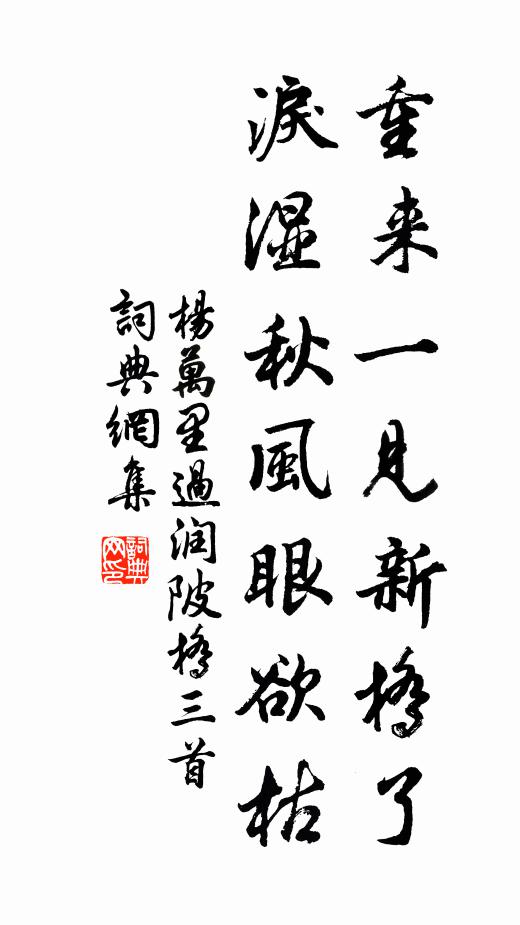 重来一見新橋了
淚濕秋風眼欲枯
楊萬里過润陂橋三首
詞典網集
詞典网印